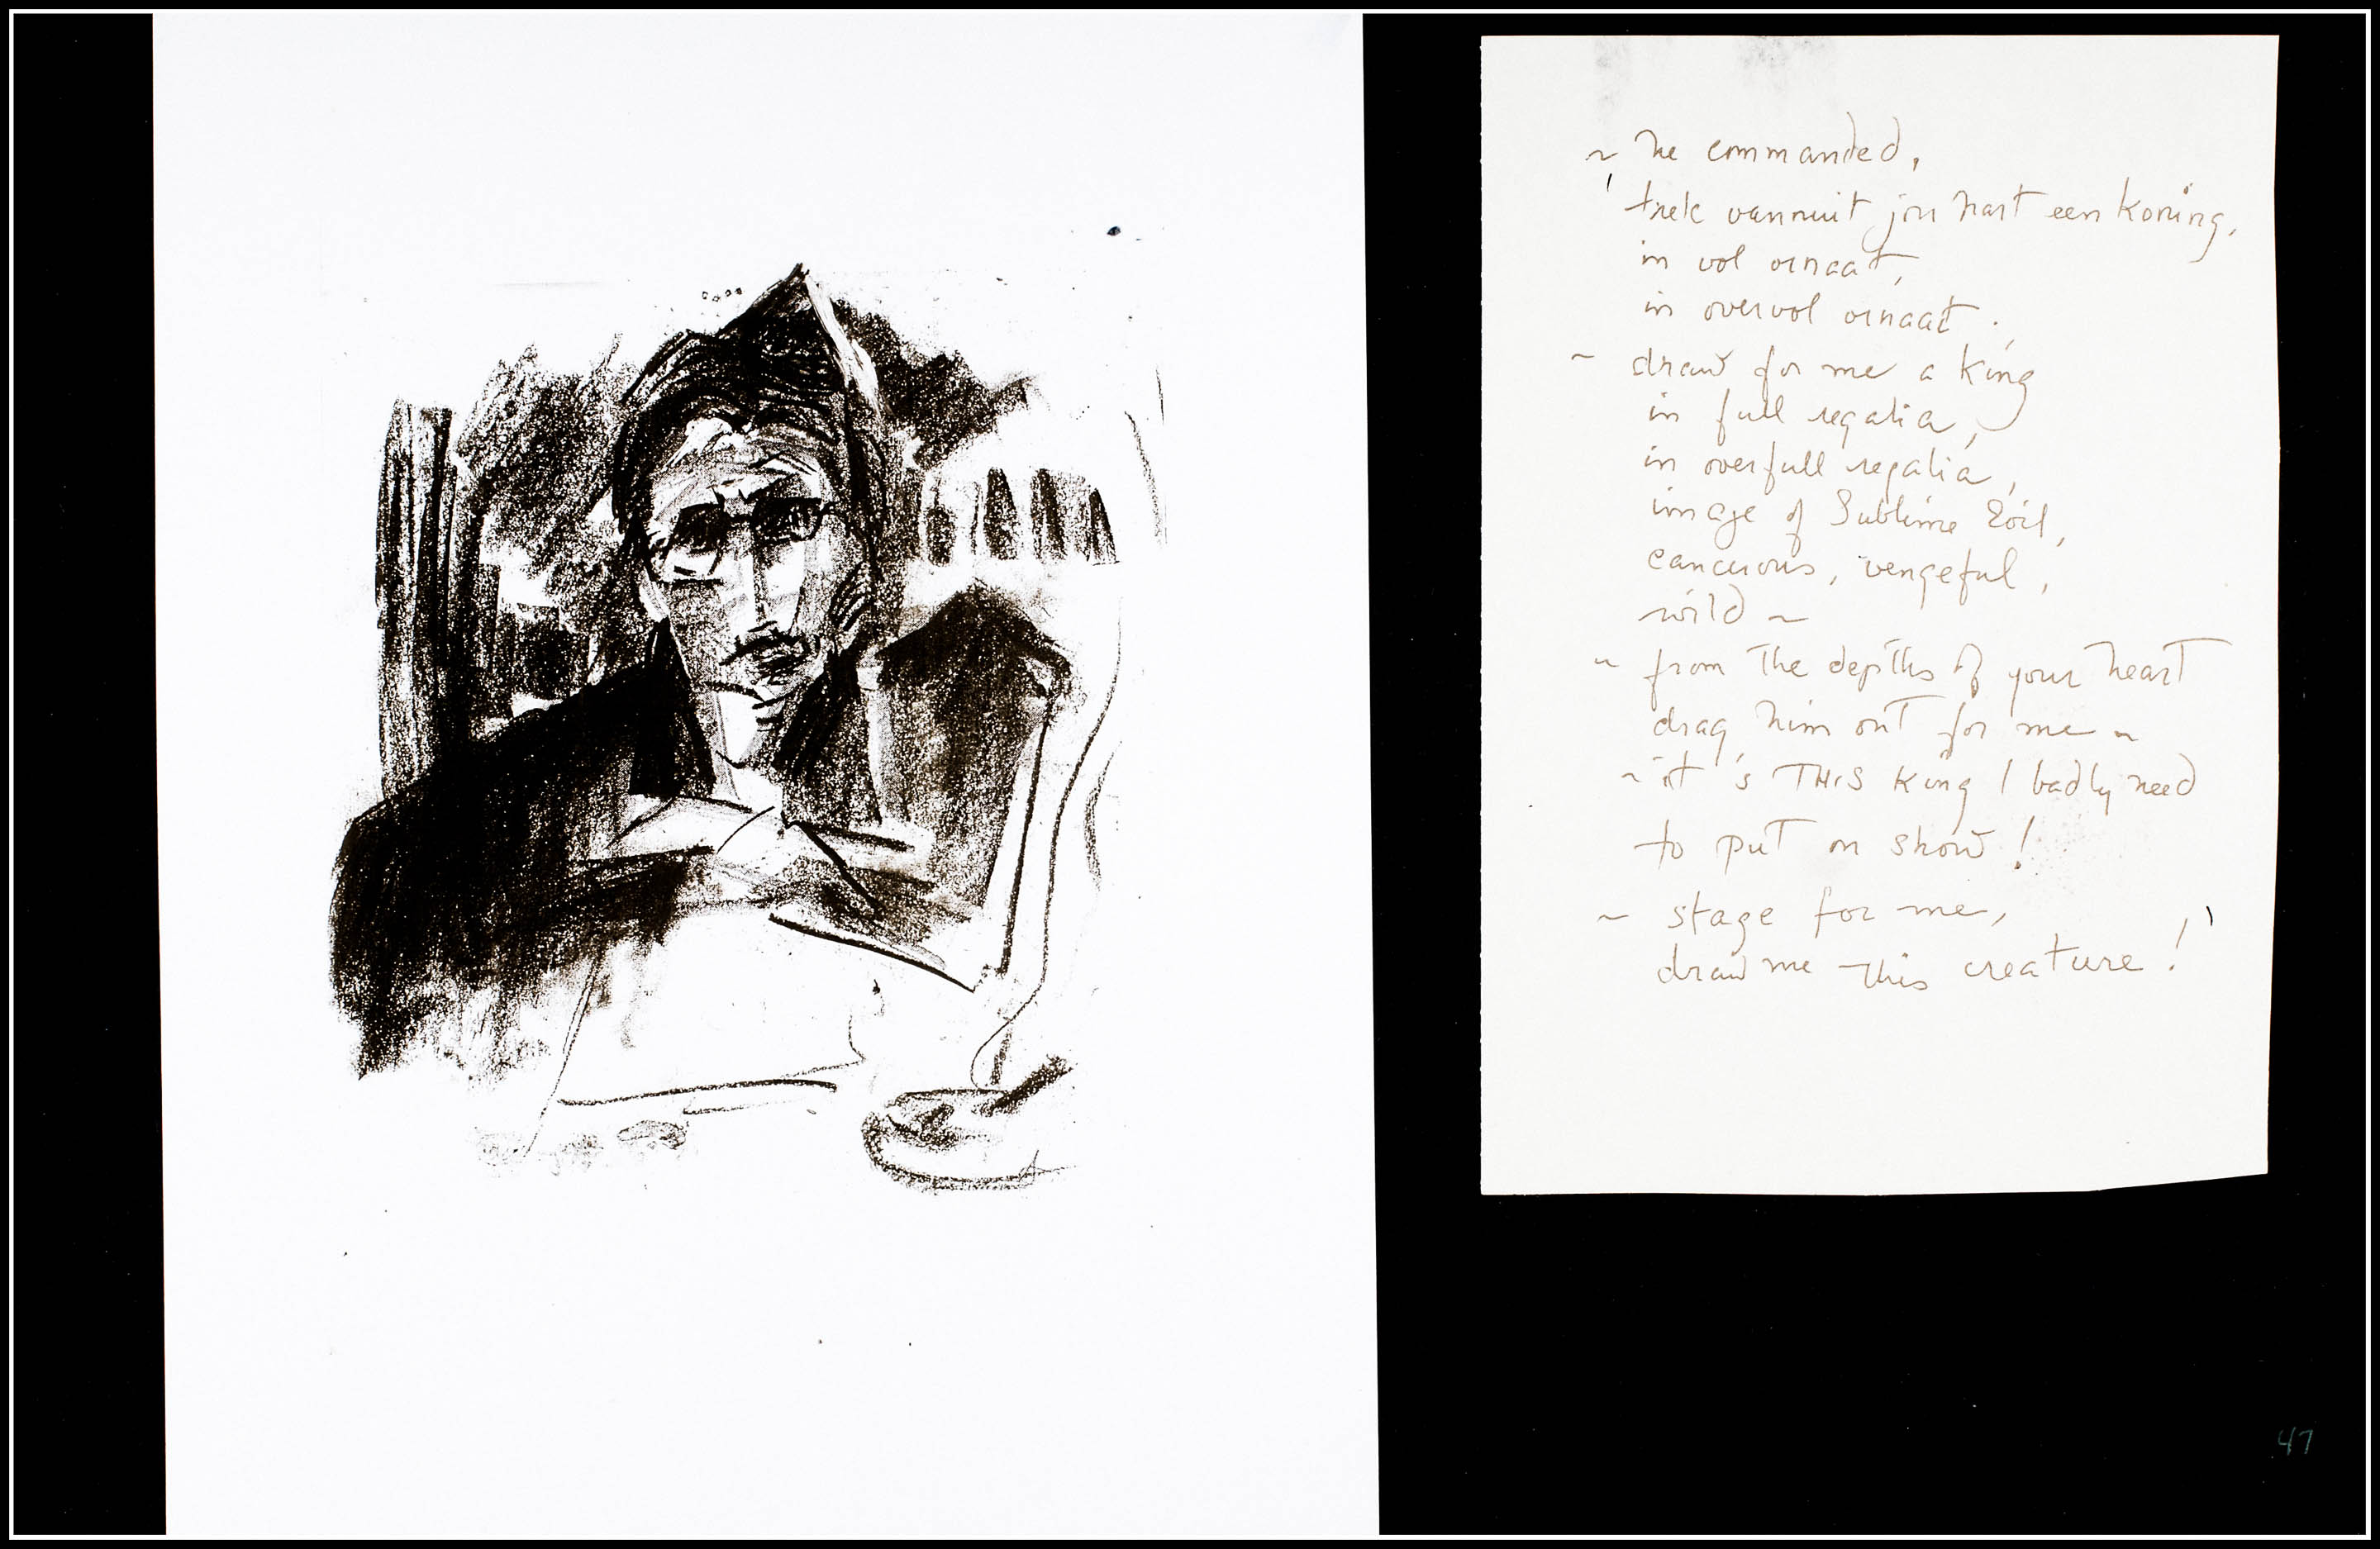 ~ he commanded,
' trek vanuit jou hart een koning,
in vol ornaat,
in overvol ornaat.
~ draw for me a king
in full regalia,
in overfull regalia,
image of Sublime Evil,
cancerous, vengeful,
wild ~
~ from the depths of your heart
drag him out for me ~
~ it's THIS king I badly need
to put on show!
~ stage for me,
draw me this creature! '
47